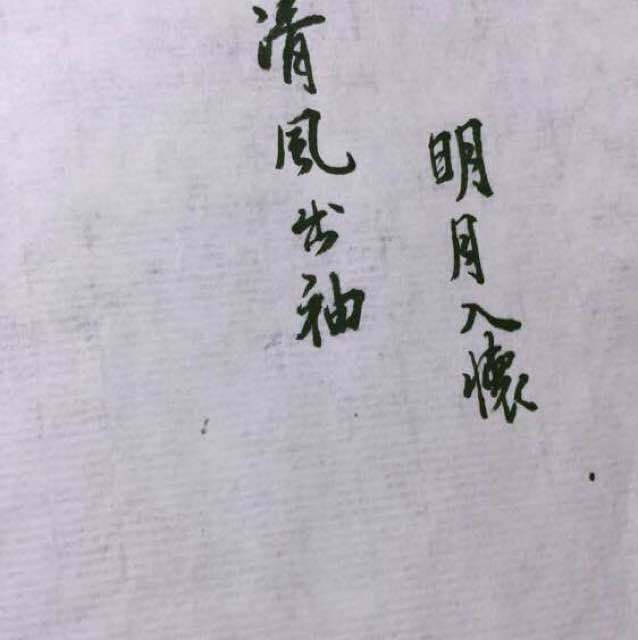 明月入懷
清風出袖